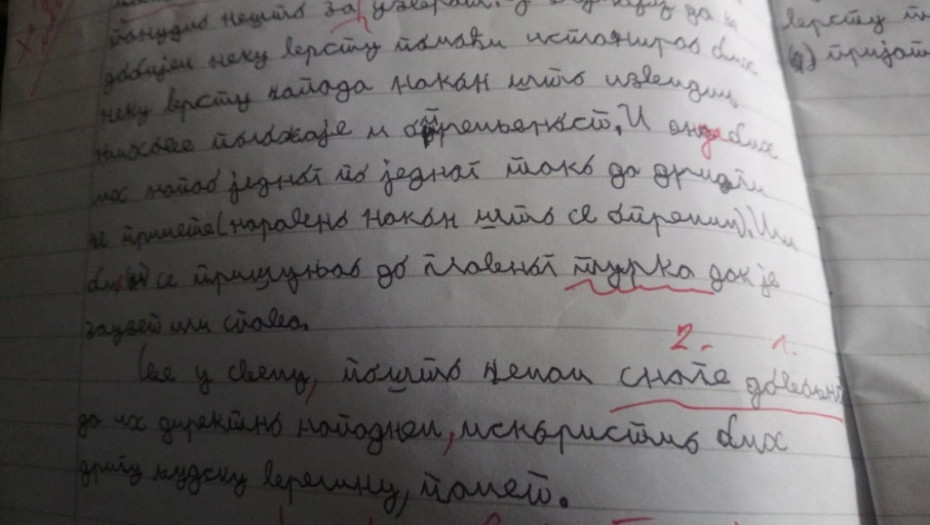 понудио нешто за да
добијем неку версту помоћи испланирао бих
неку версту напада након што извидим
њихове положаје и опремљеност. И онда бих
их напао једног по једног тако да други
не примете (наравно након што се опремим). Или
бих се пришуњао до главног турка док је
заузет или спава.
Све у свему, пошто немам снаге довољно
да их директно нападнем, искористио бих
другу људску верлину, памет.
2. 1.
версту